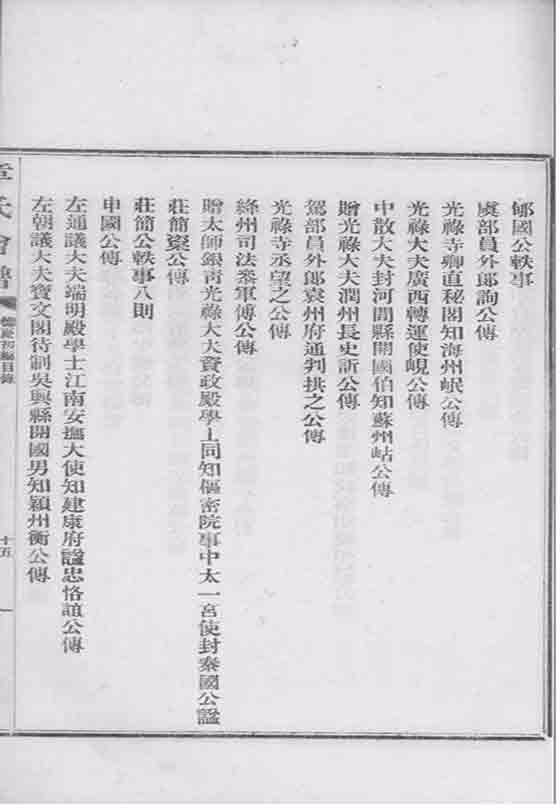 郇國公軼事
虞部員外郎詢公傳
光祿寺卿直秘閣知海州岷公傳
光祿大夫廣西轉運使峴公傳
中散大夫封河間縣開國伯知蘇州岵公傳
贈光祿大夫潤州長史訢公傳
駕部員外郎袁州府通判拱之公傳
光祿寺丞望之公傳
絳州司法叅軍傅公傳
贈太師銀青光祿大夫資政殿學士同知樞密院事中太一宮使封秦國公諡
莊簡楶公傳
莊簡公軼事八則
申國公傳
左通議大夫端明殿學士江南安撫大使知建康府諡忠恪誼公傳
左朝議大夫寶文閣待制吳興縣開國男知潁州衡公傳
章氏會譜
德慶初編目錄
十五